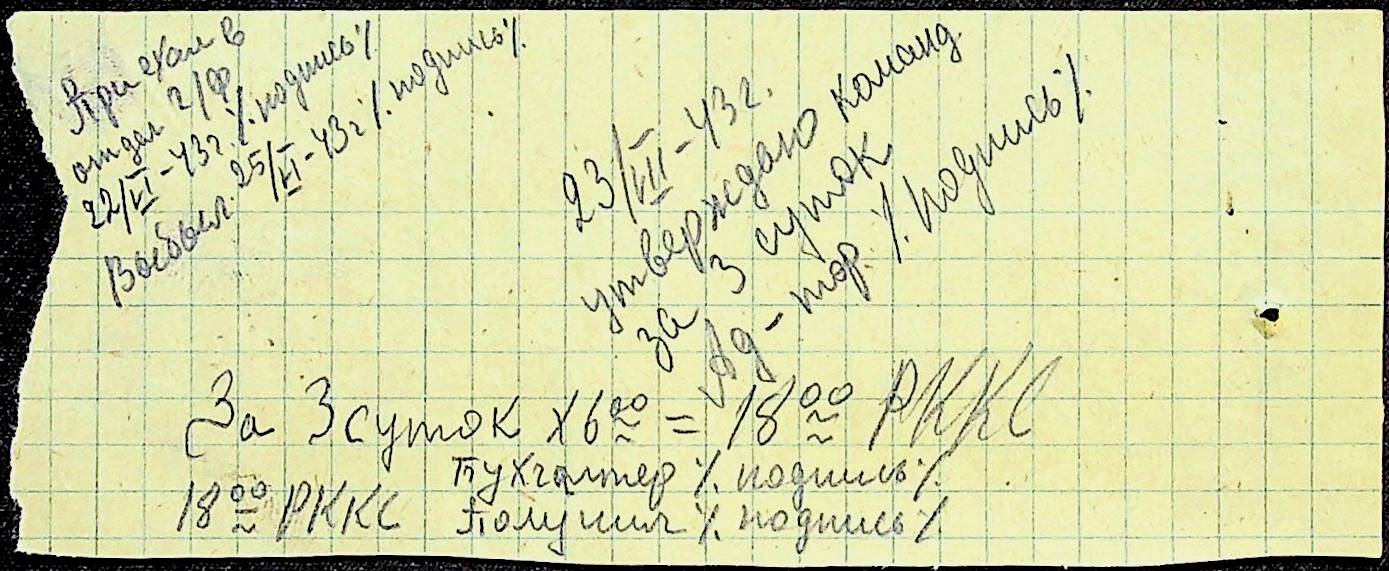 Приехал в
отдел г/ф
22/VI-43г. ./. подпись ./.
Восбыл. 25/VI-43г ./. подпись ./.
23/VIII-43г.
утверждаю команд
за 3 суток
Ад-тор. ./. Подпись ./.
За 3 суток х 6 00 = 18 00 РККС
Пухгалтер ./. подпись ./.
18 00 РККС Получил ./. подпись ./.